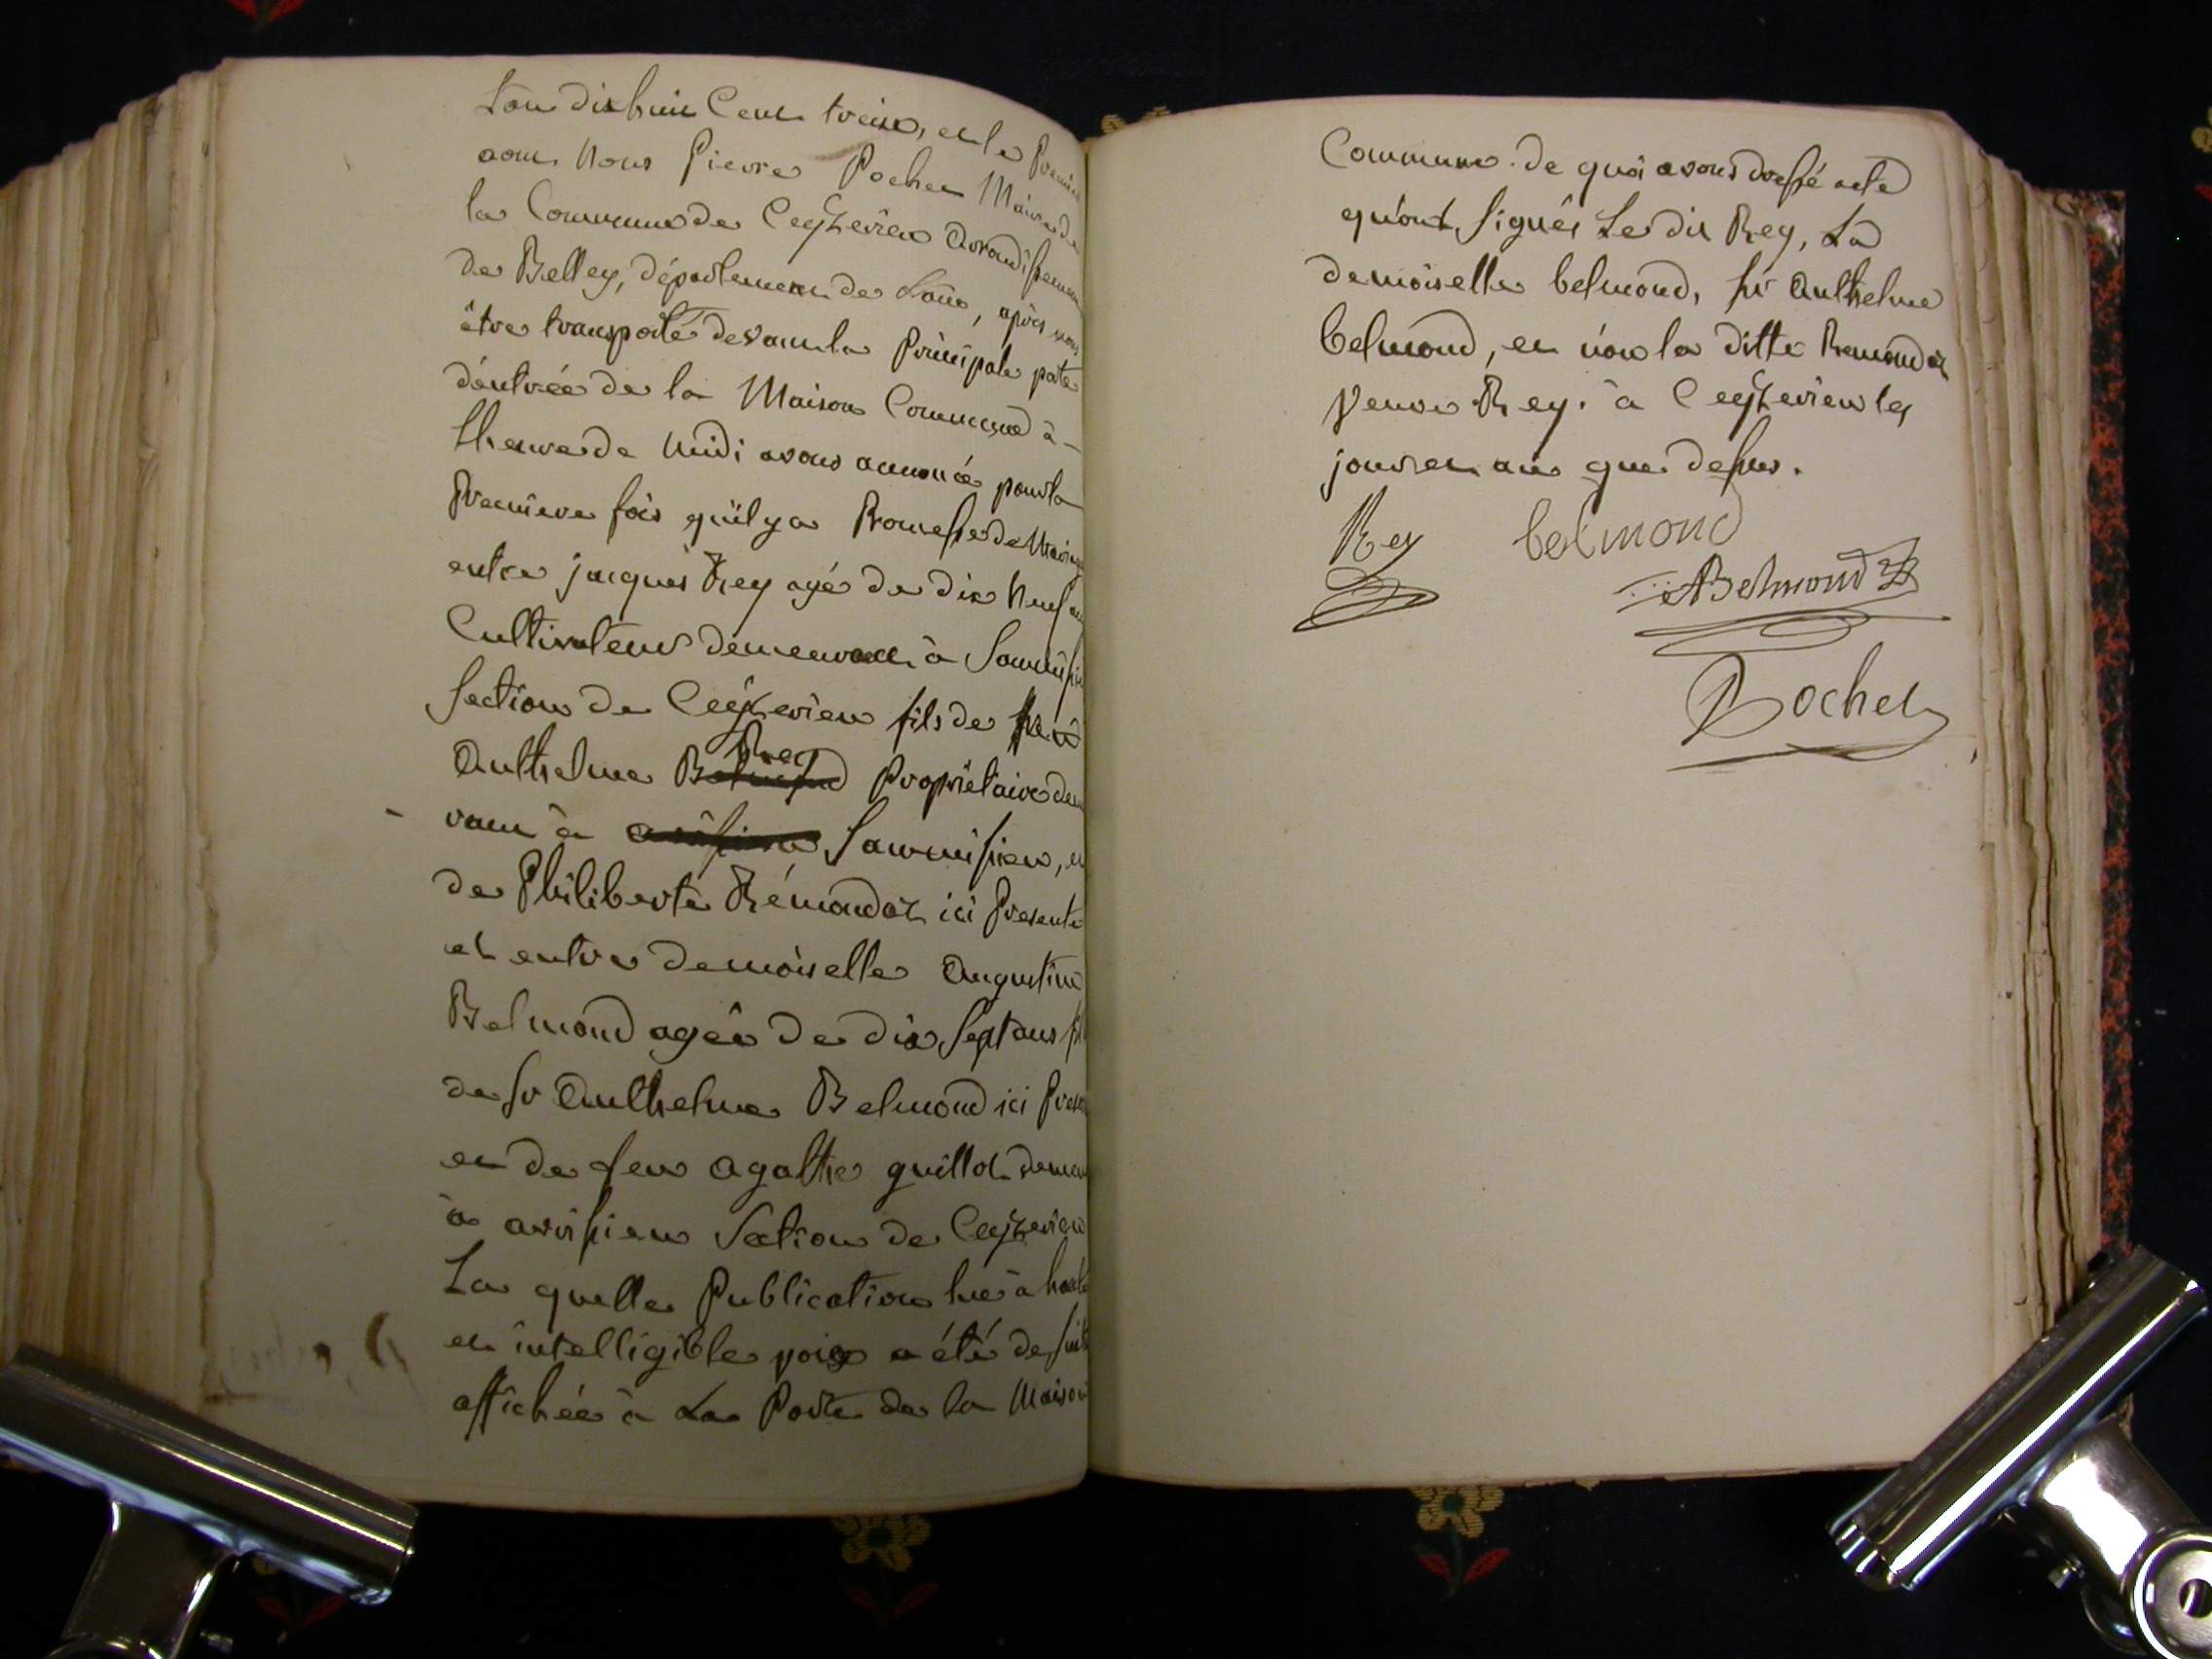 L'an dix huit Cent treize, et le Premier
aout Nous Pierre Pochet Maire de
la Commune de Ceyzerieu arrondissement
de Belley, département de L'ain, après nous
être transporté devant la Principale porte
d'entrée de la Maison Commune à
L'heure de Midi avons annoncé pour la
Premiere fois qu'il y a Promesse de Mariage
entre jacques Rey agé de dix Neuf ans
Cultivateur demeurant à Sammissieu
Section de Ceyzerieu fils de feu
Anthelme Rey Propriétaire demeu
rant à Sammissieu, et
de Philiberte Rémondaz ici Presente
et entre demoiselle Augustine
Belmond agée de dix Sept ans fille
de Sr Anthelme Belmond ici Present
et de feu agathe guillot demeurant
à avrissieu Section de Ceyzerieu
La quelle Publication lue à haute
et intelligible voix a été de suite
affichée à La Porte de la Maison
Commune. de quoi avons dressé acte
qu'ont Signés Le dit Rey, La
demoiselle belmond, Sr Anthelme
belmond, et non la ditte Remondaz
Veuve Rey. à Ceyzerieu les
jour et an que dessus.
Rey belmond
ABelmond
Pochet